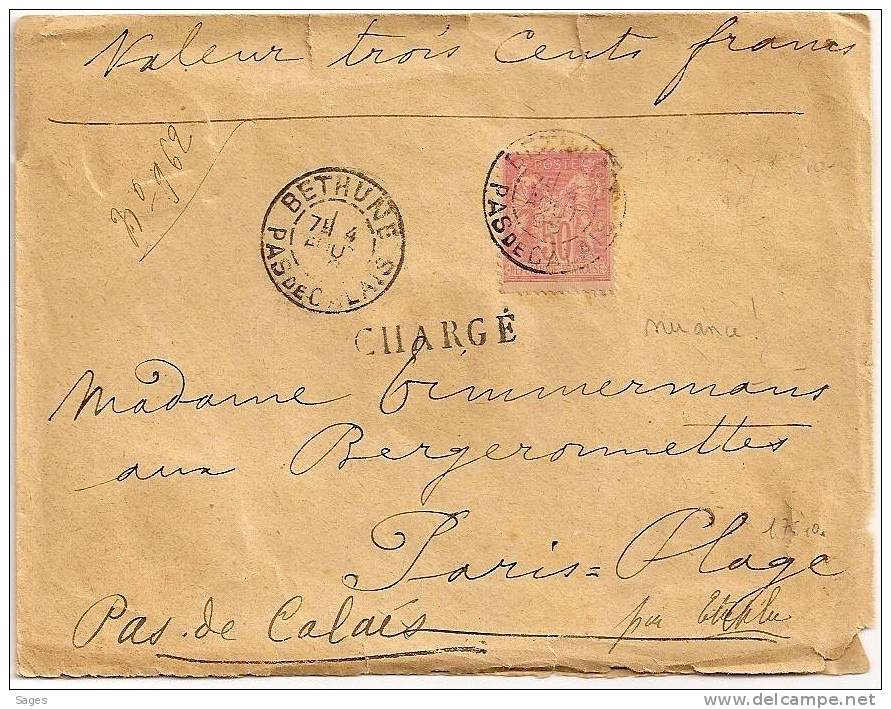 Valeur trois cents francs
3º 962
BETHUNE
7E 4
AOUT
PAS DE CALAIS
POSTE
50
PAS DE CALAIS
CHARGÉ
nuance!
Madame Timmermans
aux Bergeronnettes
Paris=Plage
Pas de Calais par
Sages
www.delcampe.net